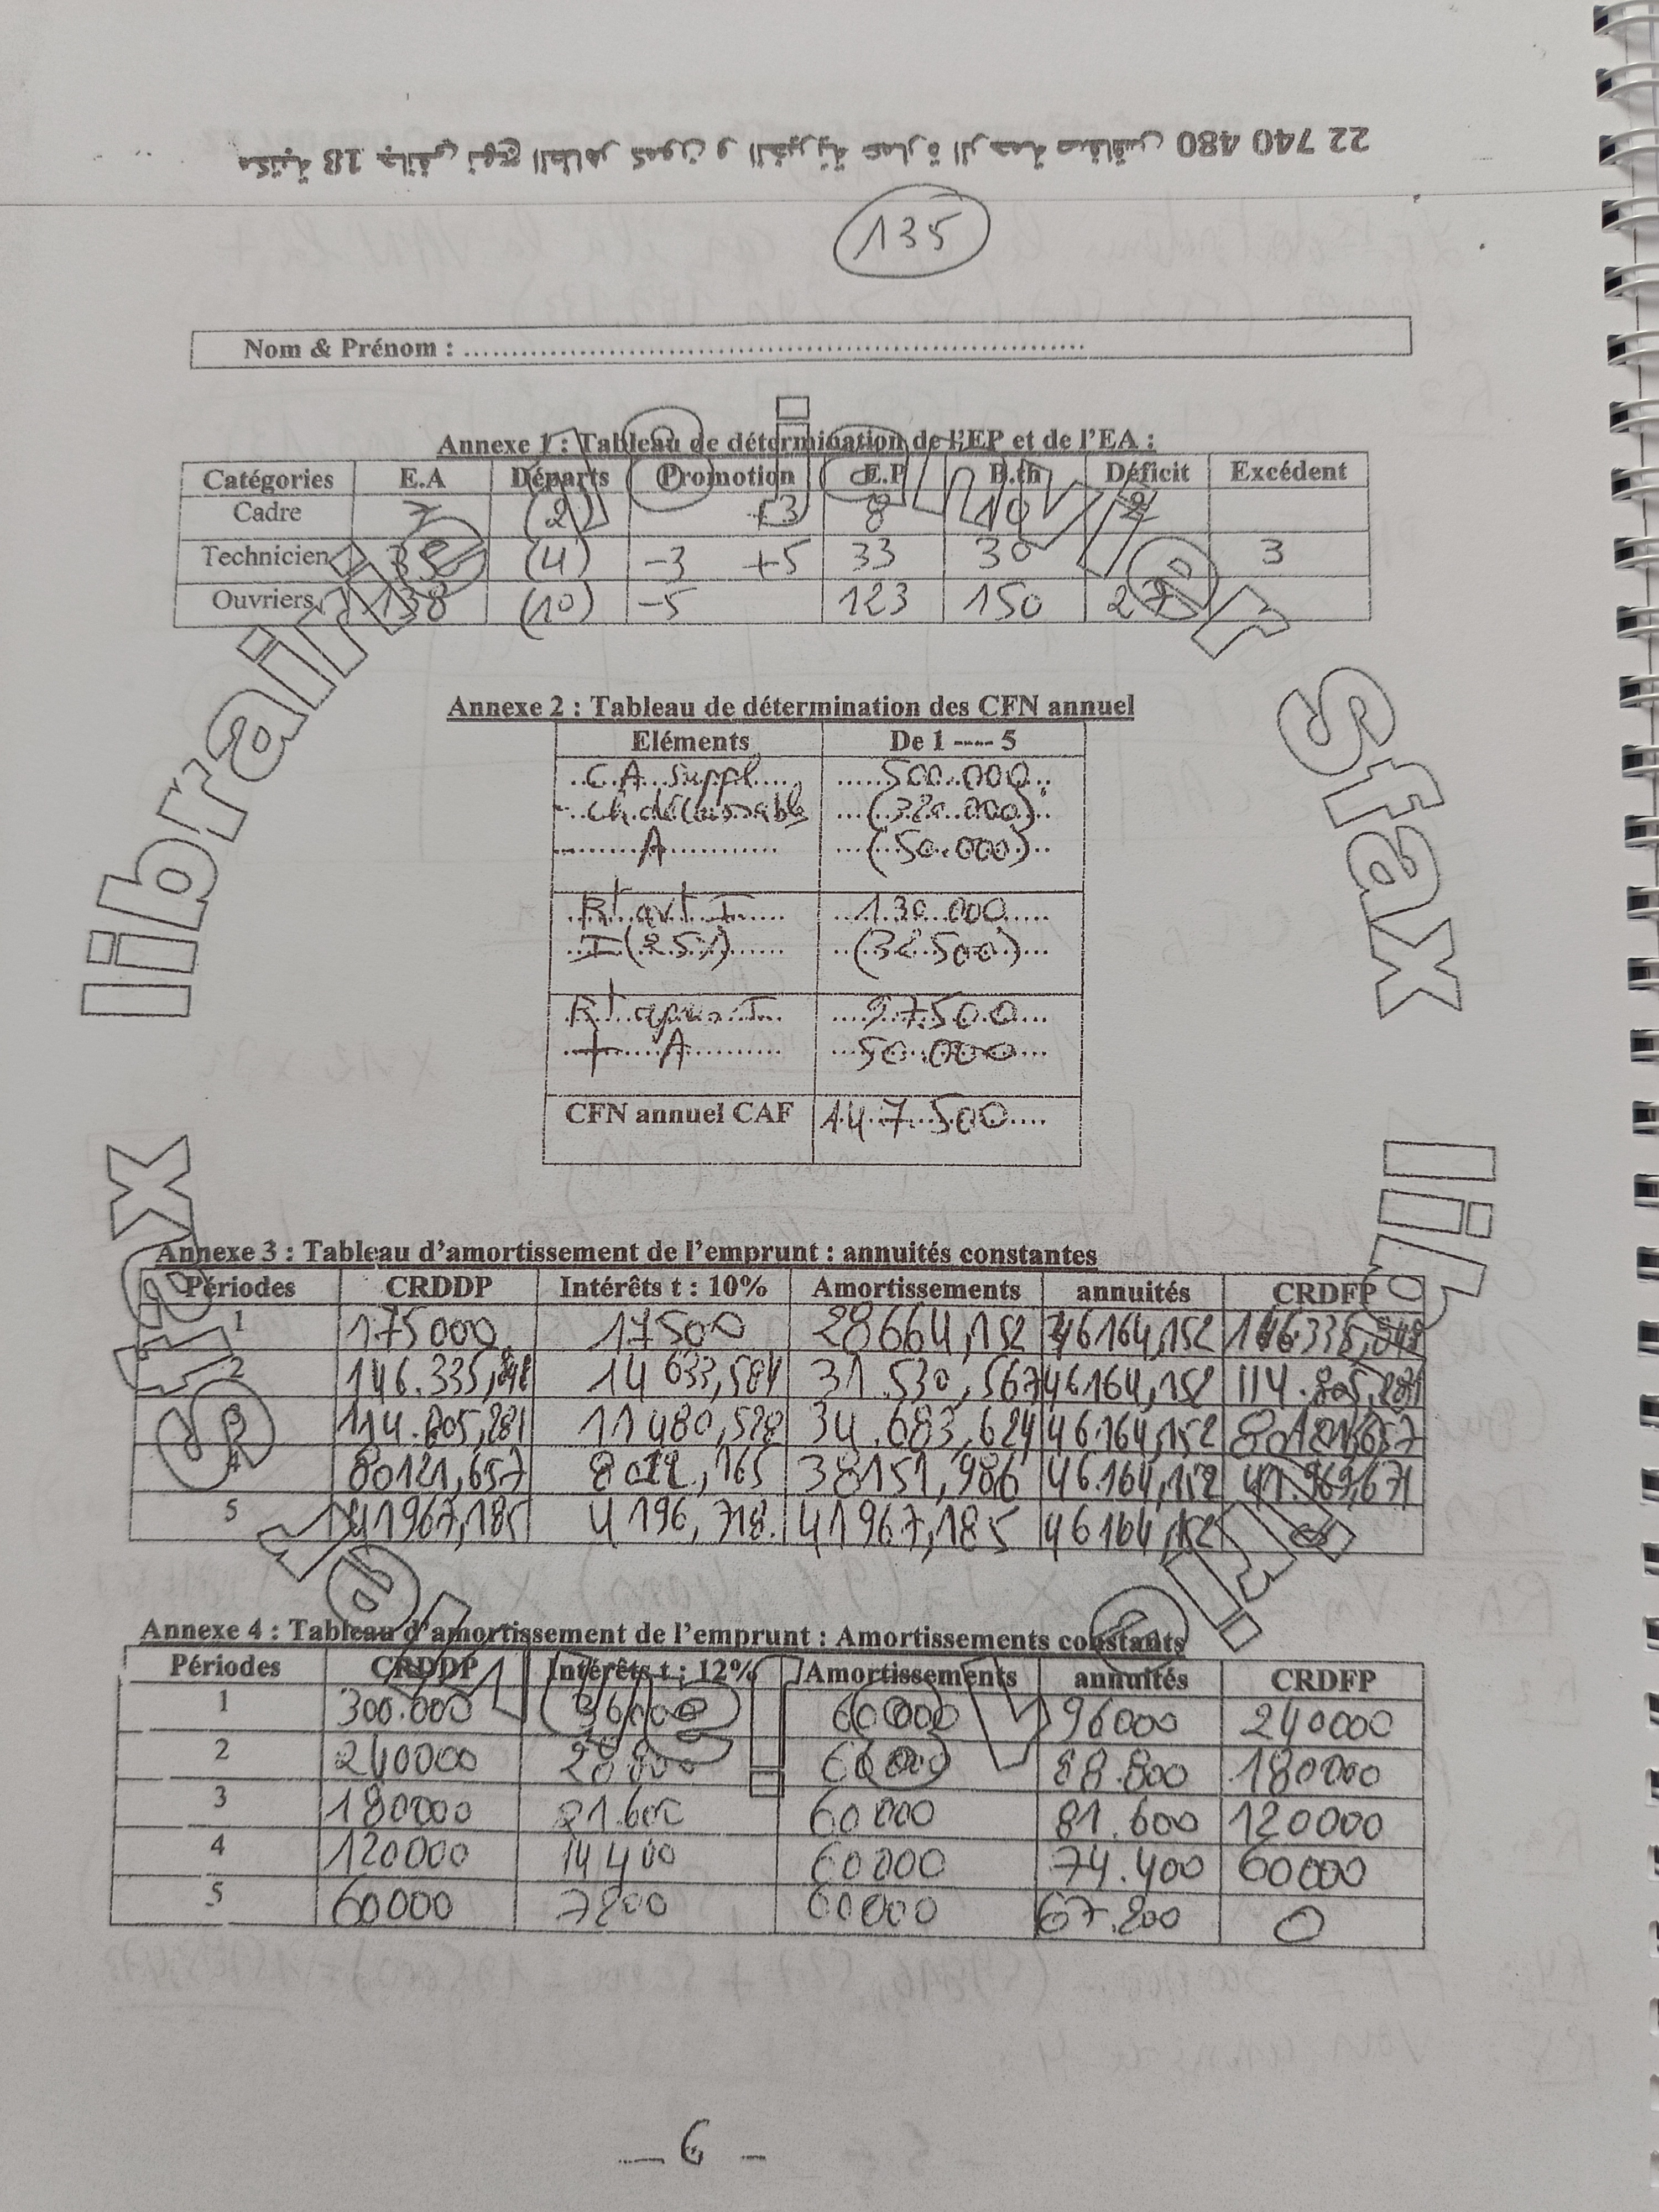 مكتبة 18 جانفي نهج الطاهر كمون و الخيرية عمارة الرحمة صفاقس 22 740 480
135
Nom & Prénom : ...............................................................
Annexe 1 : Tableau de détermination de l'EP et de l'EA :
Catégories E.A Départs Promotion E.P B.th Déficit Excédent
Cadre 7 (2) +3 8 10 2
Technicien 35 (4) -3 +5 33 30 3
Ouvriers 138 (10) -5 123 150 27
Annexe 2 : Tableau de détermination des CFN annuel
Eléments De 1 ---- 5
C.A suppl 500.000
- ch. décaissable (320.000)
- A (50.000)
Rt avt I 130 000
I (25%) (32 500)
Rt après I 97500
+ A 50.000
CFN annuel CAF 147.500
Annexe 3 : Tableau d'amortissement de l'emprunt : annuités constantes
Périodes CRDDP Intérêts t : 10% Amortissements annuités CRDFP
1 175000 17500 28664,152 46164,152 146.335,848
2 146.335,848 14 633,584 31.530,567 46164,152 114.805,281
3 114.805,281 11480,528 34.683,624 46.164,152 80121,657
4 80121,657 8012,165 38151,986 46.164,152 41.969,671
5 41967,185 4196,718 41967,185 46164,152
Annexe 4 : Tableau d'amortissement de l'emprunt : Amortissements constants
Périodes CRDDP Intérêts t : 12% Amortissements annuités CRDFP
1 300.000 36000 60000 96000 240000
2 240000 28800 60000 88.800 180000
3 180000 21.600 60000 81.600 120000
4 120000 14400 60000 74.400 60000
5 60000 7200 60000 67.200 0
- 6 -
librairie 18 janvier sfax